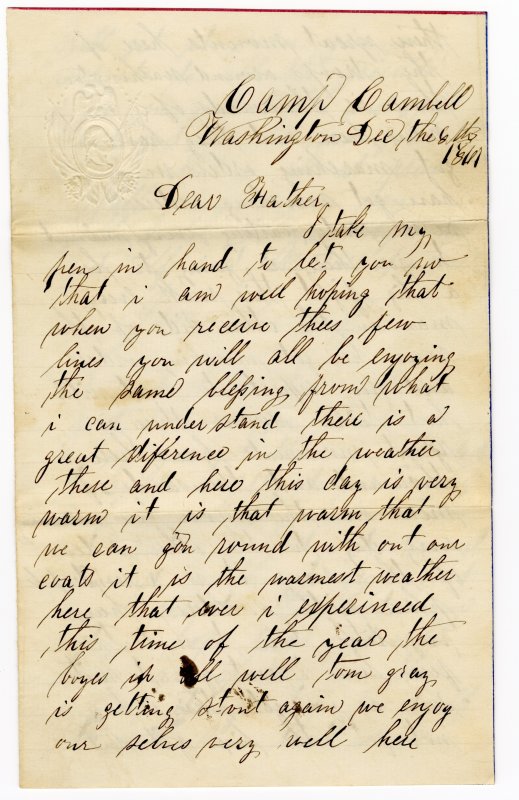 Camp Cambell
Washington Dec, the 8th
1861
Dear Father,
I take my
pen in hand to let you no
that i am well hoping that
when you receive thees few
lines you will all be enjoying
the same blessing from what
i can under stand there is a
great diference in the weather
there and here this day is very
warm it is that warm that
we can gon round with out our
coats it is the warmest weather
here that ever i experinced
this time of the year the
boyes is all well tom gray
is getting stout again we enjoy
our selves very well here